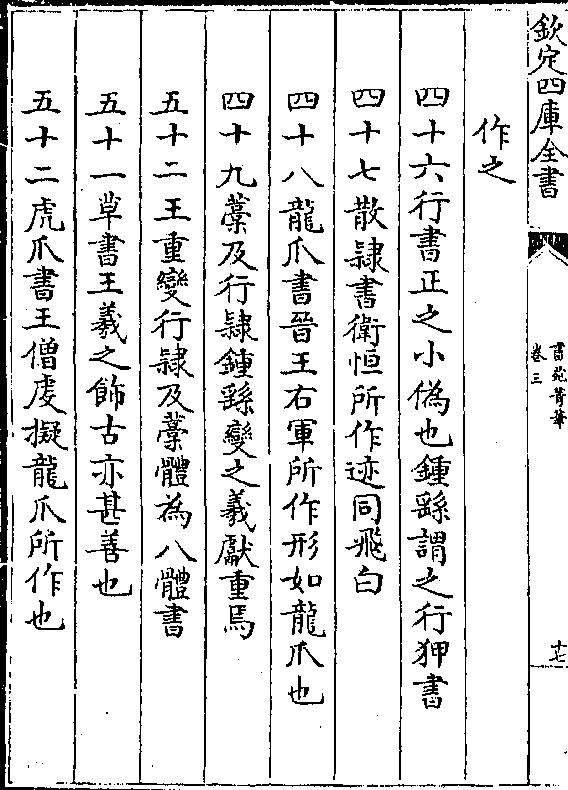 欽定四庫全書
書苑菁華
卷三
十七
作之
四十六行書正之小偽也鍾繇謂之行狎書
四十七散隷書衛恒所作迹同飛白
四十八龍爪書晉王右軍所作形如龍爪也
四十九藁及行隷鍾繇變之羲獻重焉
五十二王重變行隷及藁體為八體書
五十一草書王羲之飾古亦甚善也
五十二虎爪書王僧虔擬龍爪所作也